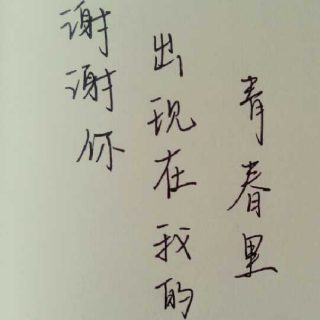 谢谢你
出现在我的
青春里